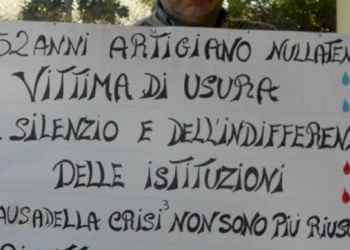 52 ANNI ARTIGIANO NULLATEN
VITTIMA DI USURA
SILENZIO E DELL'INDIFFEREN
DELLE ISTITUZIONI
AUSA DELLA CRISI NON SONO PIÙ RIUS